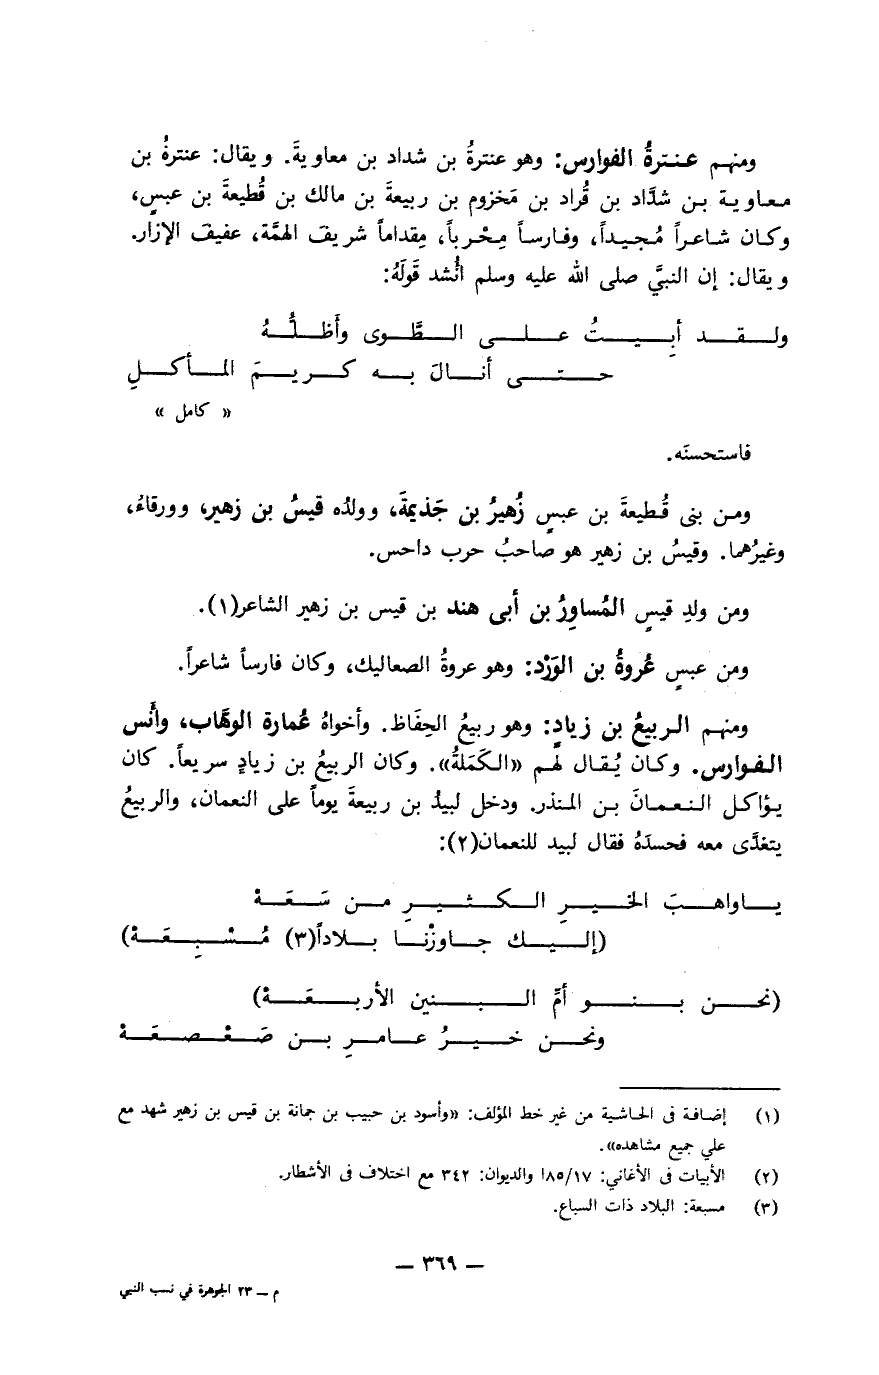 ومنهم عنترةُ الفوارس: وهو عنترةُ بن شداد بن معاويةَ. ويقال: عنترةُ بن
معاوية بن شدَّاد بن قُراد بن مَخزوم بن ربيعةَ بن مالك بن قُطيعةَ بن عبسٍ،
وكان شاعراً مُجيداً، وفارساً مِحْرباً، مِقداماً شريفَ الهمَّة، عفيفَ الإزار.
ويقال: إن النبيَّ صلى الله عليه وسلم أُنْشد قَولَهُ:
ولقد أَبِيتُ على الطَّوى وأَظلُّهُ
حتى أنالَ به كريمَ المأكلِ
« كامل »
فاستحسنَه.
ومن بنى قُطيعةَ بن عبسٍ زُهيرُ بن جَذيمةَ، وولدُه قيسُ بن زهيرٍ، وورقاءُ،
وغيرُهما. وقيسُ بن زهير هو صاحبُ حرب داحس.
ومن ولدِ قيسٍ المُساورُ بن أبى هند بن قيس بن زهير الشاعر(١).
ومن عبسٍ عُروةُ بن الوَرْد: وهو عروةُ الصعاليك، وكان فارساً شاعراً.
ومنهم الربيعُ بن زيادٍ: وهو ربيعُ الحِفَاظ. وأخواهُ عُمارة الوهَّاب، وأَنس
الفوارس. وكان يُقال لهم «الكَمَلةُ». وكان الربيعُ بن زيادٍ سريعاً. كان
يؤاكل النعمانَ بن المنذر. ودخل لبيدُ بن ربيعةَ يوماً على النعمان، والربيعُ
يتغدَّى معه فحسدَهُ فقال لبيد للنعمان(٢):
ياواهبَ الخيرِ الكثيرِ من سَعَهْ
(إليك جاوزْنا بلاداً(٣) مُسْبِعَهْ)
(نحن بنو أمِّ البنين الأربعَهْ)
ونحن خيرُ عامرِ بن صَعْصعَهْ
(١) إضافة فى الحاشية من غير خط المؤلف: «وأسود بن حبيب بن جمانة بن قيس بن زهير شهد مع
علي جميع مشاهده».
(٢) الأبيات فى الأغاني: ١٨٥/١٧ والديوان: ٣٤٢ مع اختلاف فى الأشطار.
(٣) مسبعة: البلاد ذات السباع.
— ٣٦٩ —
م — ٢٣ الجوهرة في نسب النبي